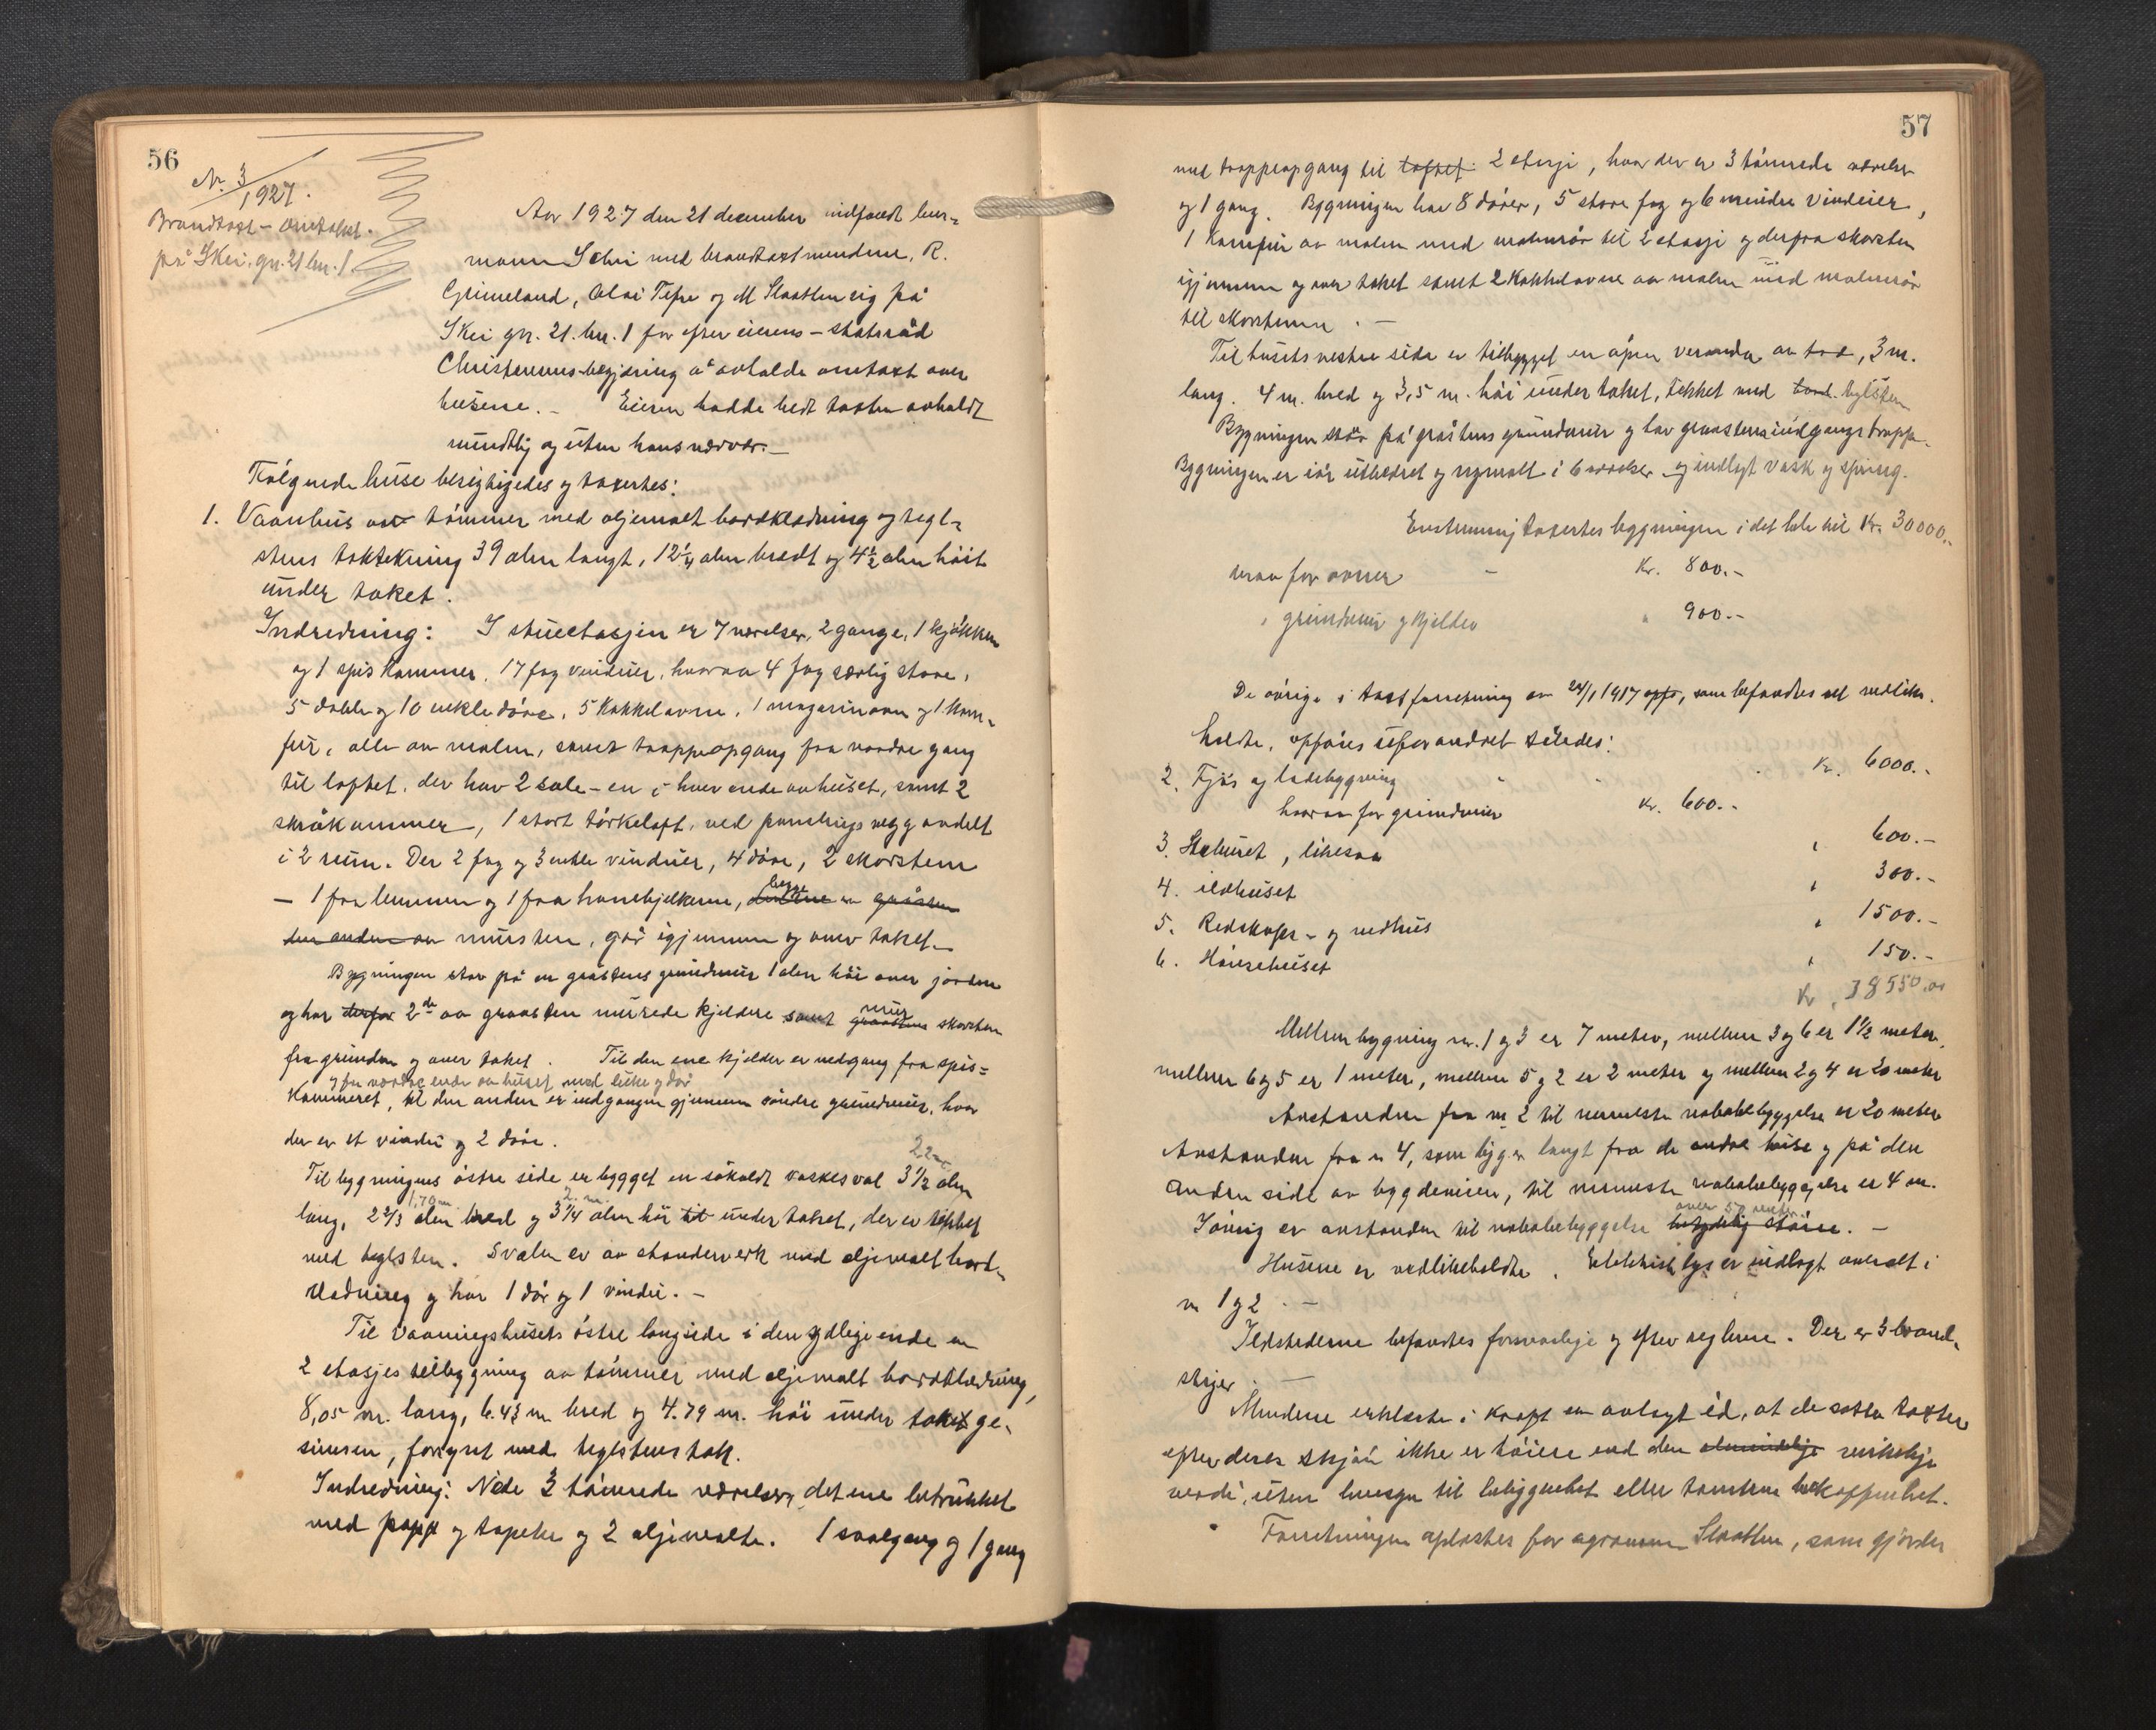 56
No. 3
1927.
Brandtaxt - omtakst.
på Skei, gn. 21 bn. 1
Aar 1927 den 21 december indfandt lens-
mann Schei med brandtaxtmendene, R.
Grimeland, Olai Tefre og M Slaatten sig på
Skei gn. 21. bn. 1 for efter eierens - statsråd
Christensens begjæring å avholde omtaxt over
husene. - Eieren hadde bedt taxten avholdt
mundtlig og uten hans nærvær. -
Følgende huse besigtigedes og taxertes:
1. Vaanhus av tømmer med oljemalt bordklædning og tegl-
stens taktekning 39 alen langt, 12 1/4 alen bredt og 4 1/2 alen høit
under taket.
Indredning: I stueetasjen er 7 værelser, 2 gange, 1 kjøkken
og 1 spiskammer, 17 fag vinduer, hvorav 4 fag særlig store,
5 doble og 10 enkle døre, 5 kakkelovne, 1 magasinovn og 1 kom-
fur, alle av malm, samt trappeopgang fra nordre gang
til loftet, der har 2 sale - en i hver ende av huset, samt 2
skråkammer, 1 stort tørkeloft, ved panelings vegg avdelt
i 2 rum. Der 2 fag og 3 enkle vinduer, 4 døre, 2 skorstene
- 1 fra lemmen og 1 fra hanebjelkerne, den ene begge av gråsten
den anden av mursten, går igjennem og over taket.
Bygningen står på en gråstens grundmur 1 alen høi over jorden
og har derfor 2de av graasten murede kjeldere samt graastens mur skorsten
fra grunden og over taket. Til den ene kjelder er nedgang fra spis=
og fra nordre ende av huset, med luke og dør
kammeret, til den anden er indgangen gjennem søndre grundmur, hvor
der er et vindu og 2 døre.
Til bygningens østre side er bygget en såkaldt vaskesval 3 1/2 alen 2.2 m
lang, 2 2/3 alen 1,70 m bred og 3 1/4 alen 2. m. høi til under taket, der er tekket
med teglsten. Svalen er av standerverk med oljemalt bord-
klædning og har 1 dør og 1 vindu. -
Til vaaningshusets østre langside i den sydlige ende en
2 etasjes tilbygning av tømmer med oljemalt bordklædning,
8,05 m. lang, 6.43 m bred og 4.79 m. høi under taket ge-
simsen, forsynt med teglstenstak.
Indredning: Nede 3 tømrede værelser, det ene betrukket
med papp og tapeter og 2 oljemalte. 1 svalgang og 1 gang
57
med trappeopgang til loftet 2 etasje, hvor der er 3 tømrede værelser
og 1 gang. Bygningen har 8 dører, 5 store fag og 6 mindre vinduer,
1 komfur av malm med malmrør til 2 etasje og derfra skorsten
igjennem og over taket samt 2 kakkelovne av malm med malmrør
til skorstenen. -
Til husets vestre side er tilbygget en åpen veranda av tre, 3 m.
lang. 4 m. bred og 3,5 m. høi under taket, tekket med bord. teglsten
Bygningen står på gråstens grundmur og har graastens indgangstrappe.
Bygningen er iår utbedret og nymalt i 6 værelser og indlagt vask og spring.
Enstemmig taxertes bygningen i det hele til Kr. 30000.-
herav for ovner - Kr. 800.-
" grundmur og kjelder " 900.-
De øvrige i taxtforretning av 24/1 1917 opf., som befandtes vel vedlike-
holdte, opføres uforandret således:
2. Fjøs og ladebygning Kr. 6000.-
hvorav for grundmur kr. 600.-
3. Stabuset, likesaa " 600.-
4. ildhuset " 300.-
5. Redskaps- og vedhus " 1500.-
6. Hønsehuset " 150.-
Kr. 38550.00
Mellem bygning nr. 1 og 3 er 7 meter, mellem 3 og 6 er 1 1/2 meter,
mellem 6 og 5 er 1 meter, mellem 5 og 2 er 2 meter og mellem 2 og 4 er 20 meter
Avstanden fra nr 2 til nermeste nabobebyggelse er 20 meter
Avstanden fra nr 4, som ligger langt fra de andre huse og på den
anden side av bygdeveien, til nermeste nabobebyggelse er 4 m.
Iøvrig er avstanden til nabobebyggelse betydelig større over 50 meter. -
Husene er vedlikeholdte. Elektrisk lys er indlagt overalt i
nr 1 og 2. -
Ildstederne befandtes forsvarlige og efter reglerne. Der er 3 brand-
stiger. -
Mendene erklærte i kraft av avlagt ed, at de satte taxter
efter deres skjøn ikke er høiere end den almindelige virkelige
verdi, uten hensyn til beliggenhet eller tomtens beskaffenhet.
Forretningen oplæstes for agronom Slaatten, som gjorder